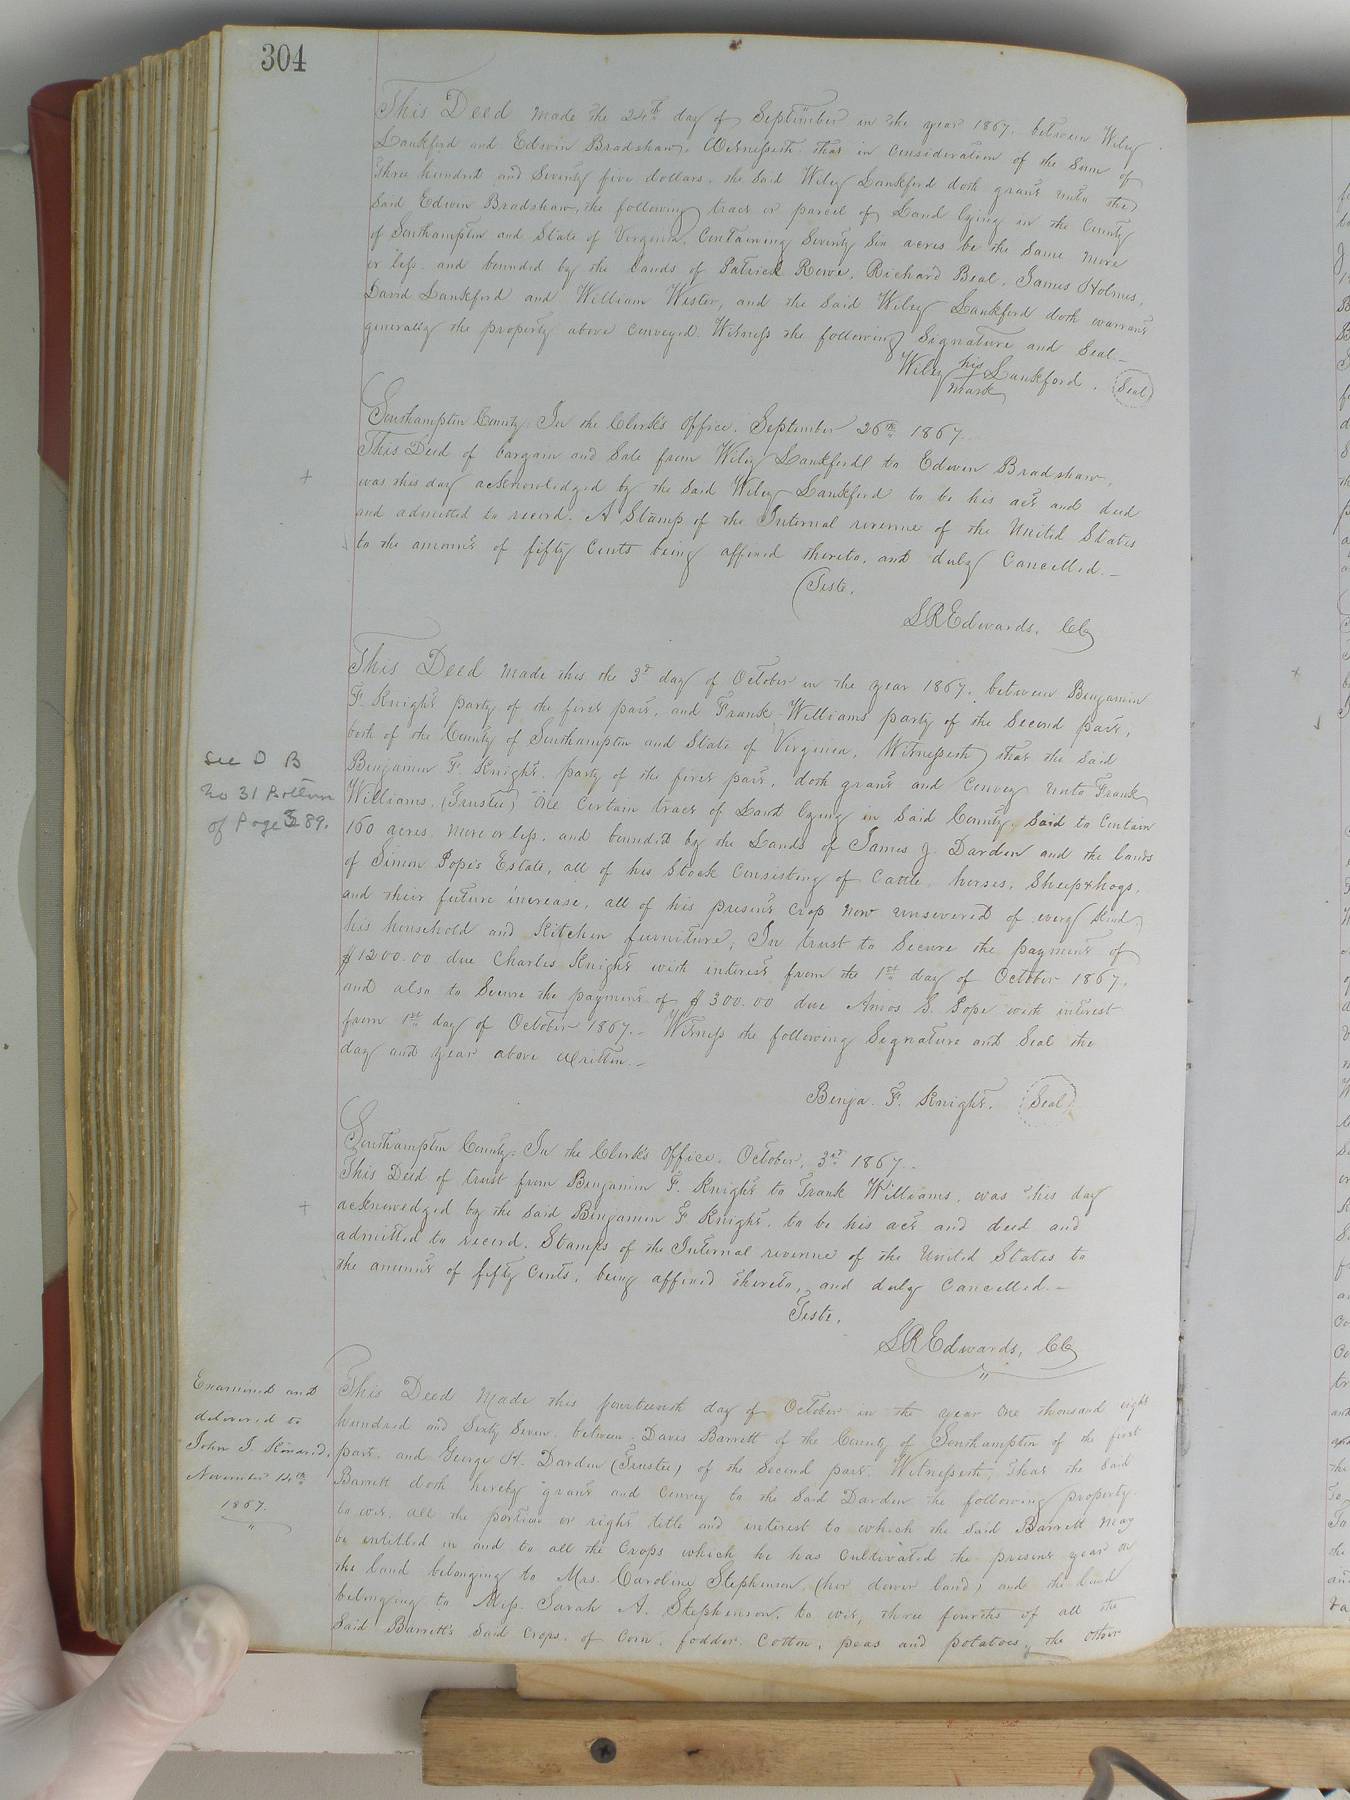 304
This Deed made the 24th day of September in the year 1867. between Wiley
Lankford and Edwin Bradshaw, Witnesseth that in Consideration of the Sum of
Three hundred and Seventy five dollars. the Said Wiley Lankford doth grant unto the
Said Edwin Bradshaw, the following tract or parcel of Land lying in the County
of Southampton and State of Virginia, Containing Seventy Six acres be the Same more
or less. and bounded by the Lands of Patrick Rowe, Richard Beal, James Holmes,
David Lankford and William Wester, and the Said Wiley Lankford doth warrant
generally the property above Conveyed. Witness the following Signature and Seal—
Wiley his Lankford. Seal
mark
Southampton County. In the Clerk's Office. September 26th 1867.
This Deed of bargain and Sale from Wiley Lankford to Edwin Bradshaw,
was this day acknowledged by the Said Wiley Lankford to be his act and deed
and admitted to record. A Stamp of the Internal revenue of the United States
to the amount of fifty Cents being affixed thereto, and duly Cancelled.—
Teste,
LR Edwards, CC
This Deed made this the 3d day of October in the year 1867. between Benjamin
F. Knight party of the first part, and Frank Williams party of the Second part,
both of the County of Southampton and State of Virginia, Witnesseth that the Said
Benjamin F. Knight, party of the first part, doth grant and Convey unto Frank
Williams, (Trustee) One Certain tract of Land lying in Said County, Said to Contain
160 acres, more or less, and bounded by the Lands of James J. Darden and the lands
of Simon Pope's Estate, all of his Stock Consisting of Cattle, horses, Sheep & hogs,
and their future increase, all of his present crop now unsevered of every kind,
his household and Kitchen furniture, In trust to Secure the payment of
$1200.00 due Charles Knight with interest from the 1st day of October 1867,
and also to Secure the payment of $300.00 due Amos S. Pope with interest
from 1st day of October 1867.— Witness the following Signature and Seal the
day and year above written.—
Benja. F. Knight. Seal
See D B
No 31 Bottom
of Page 389.
Southampton County: In the Clerk's Office. October, 3rd 1867.
This Deed of trust from Benjamin F. Knight to Frank Williams, was this day
acknowedged by the Said Benjamin F Knight, to be his act and deed and
admitted to record. Stamps of the Internal revenue of the United States to
the amount of fifty Cents, being affixed thereto, and duly Cancelled.—
Teste,
LR Edwards, CC
Examined and
delivered to
John J. Kindred,
November 14th
1867.
This Deed Made this fourteenth day of October in the year One thousand eight
hundred and Sixty Seven. between Davis Barrett of the County of Southampton of the first
part, and George H. Darden (Trustee) of the Second part. Witnesseth, that the Said
Barrett doth hereby grant and Convey to the Said Darden the following property.
to wit, all the portion or right title and interest to which the Said Barrett may
be entitled in and to all the Crops which he has Cultivated the present year on
the land belonging to Mrs. Caroline Stephenson, (her dower land) and the land
belonging to Miss. Sarah A. Stephenson, to wit, three fourths of all the
Said Barrett's Said Crops. of Corn, fodder. Cotton, peas and potatoes, the other